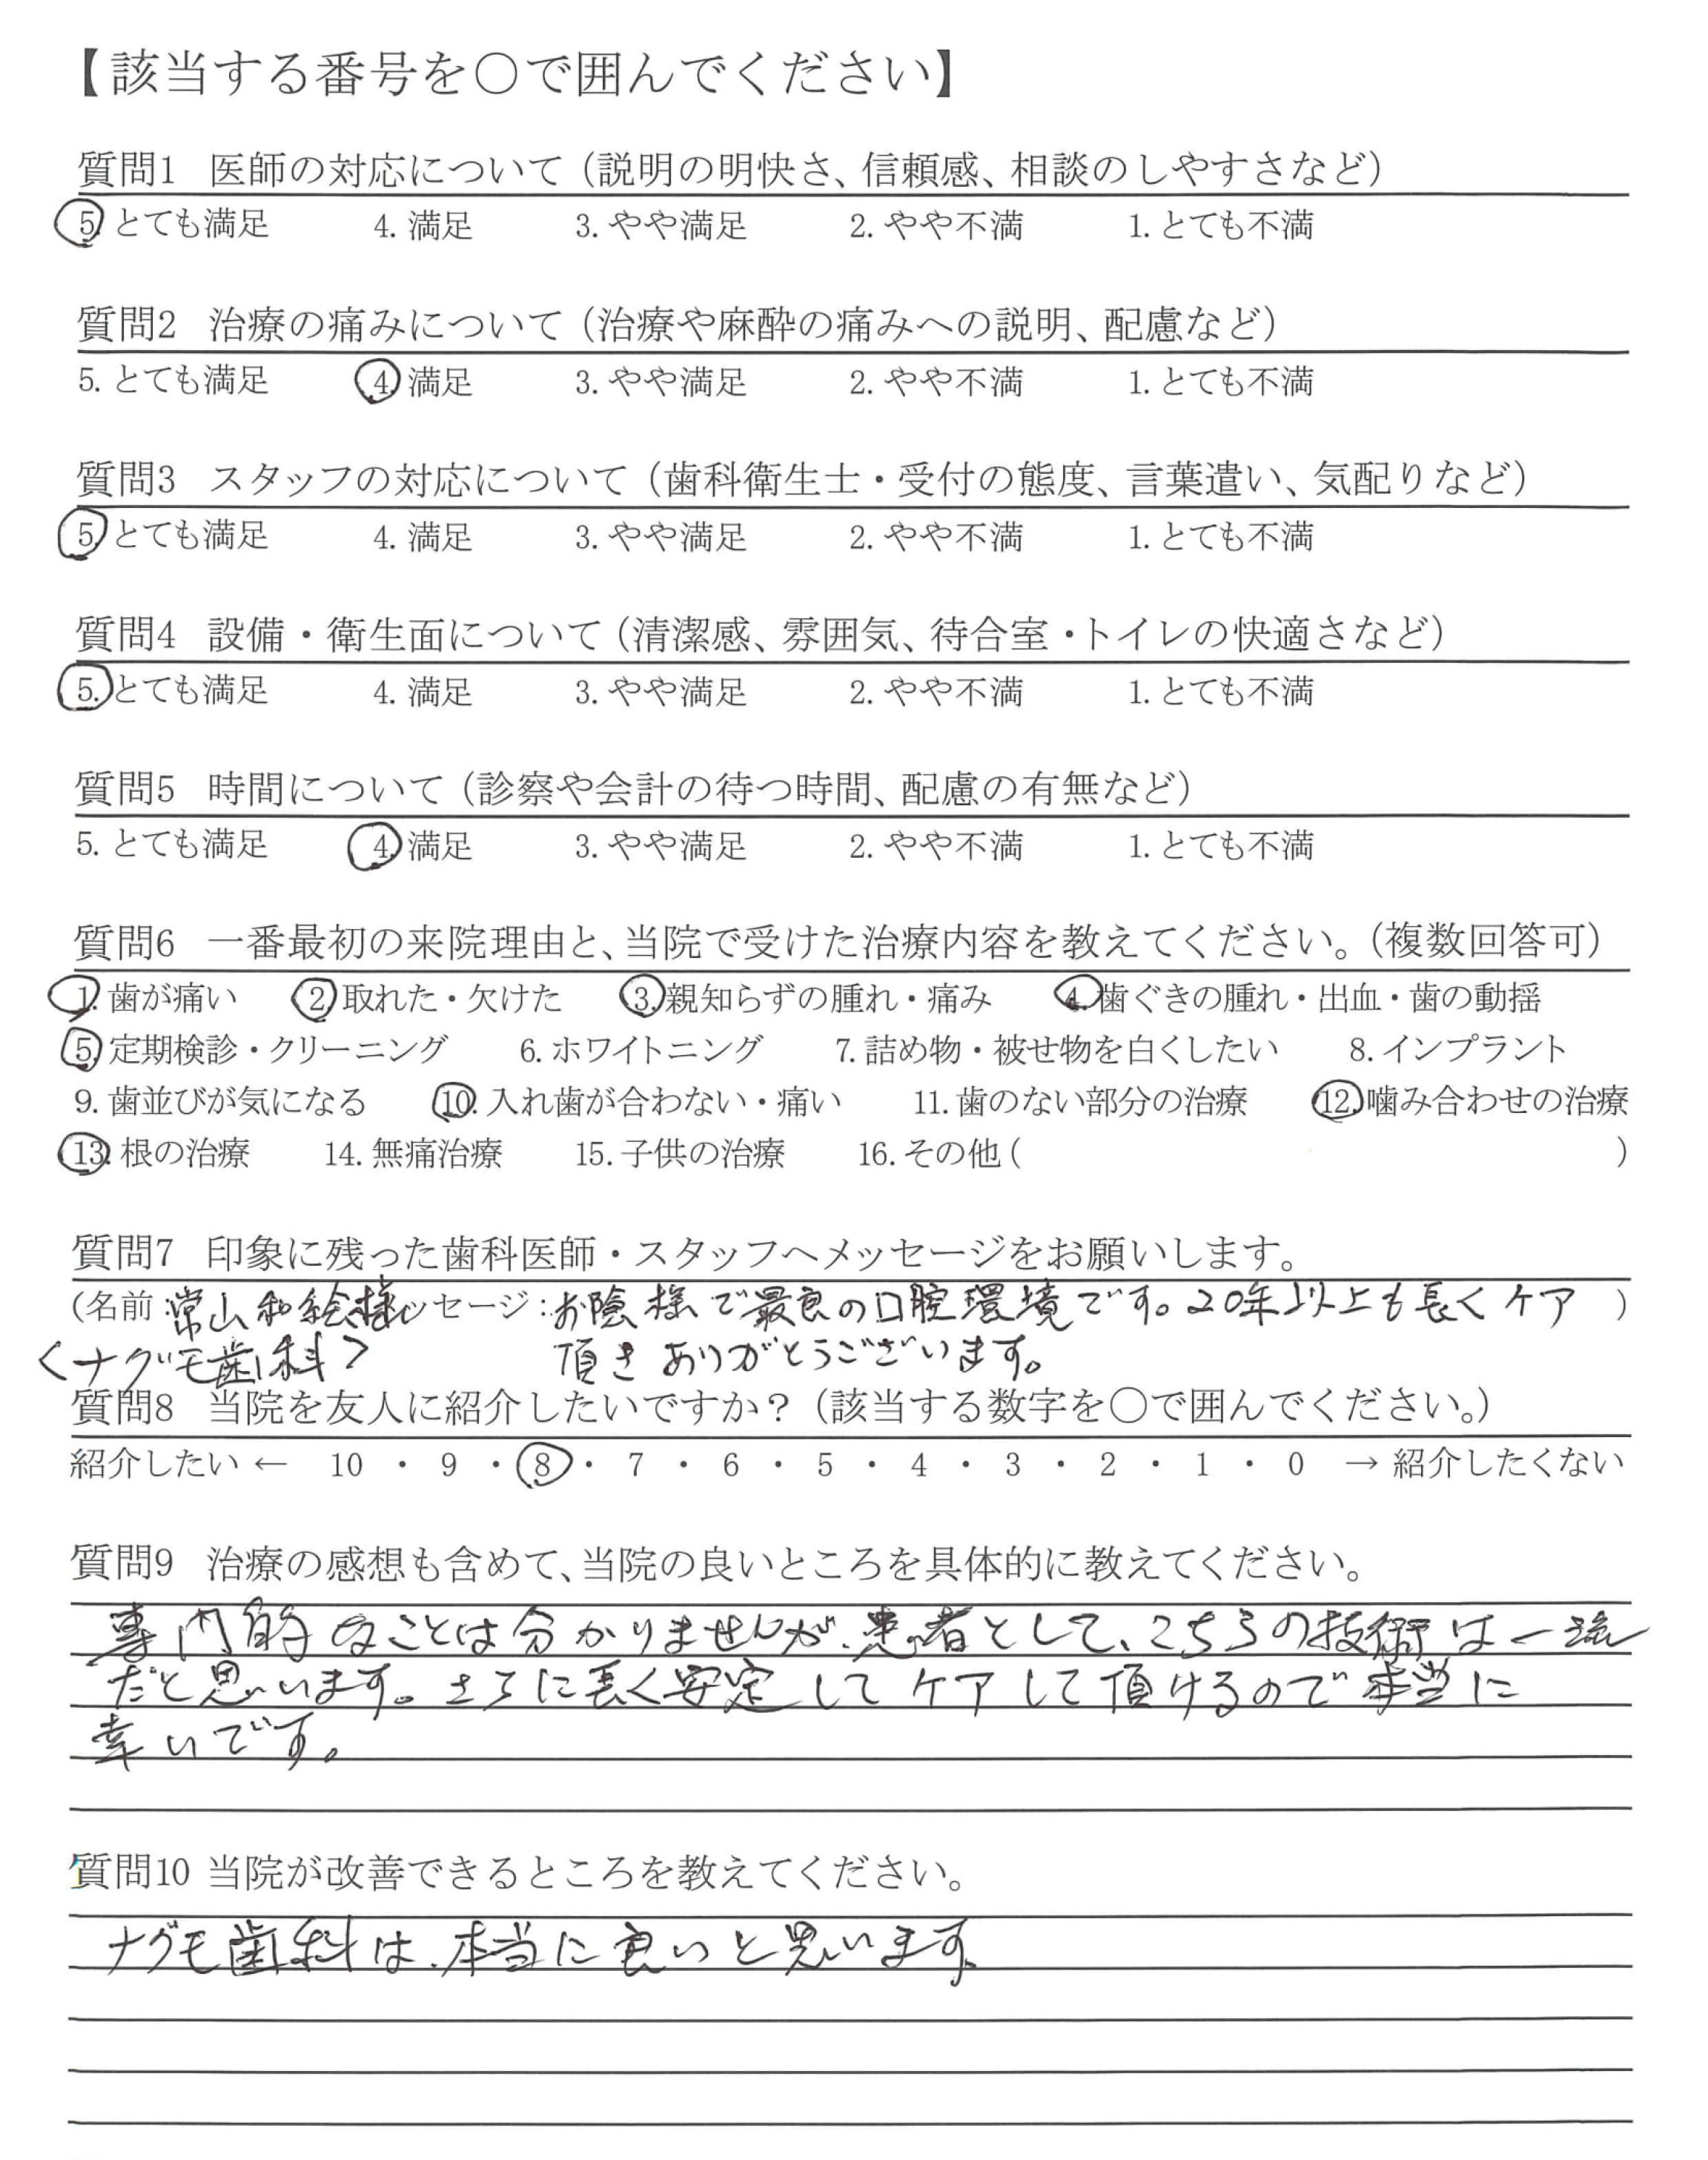 【該当する番号を○で囲んでください】
質問1 医師の対応について（説明の明快さ、信頼感、相談のしやすさなど）
5. とても満足 4. 満足 3. やや満足 2. やや不満 1. とても不満
質問2 治療の痛みについて（治療や麻酔の痛みへの説明、配慮など）
5. とても満足 4. 満足 3. やや満足 2. やや不満 1. とても不満
質問3 スタッフの対応について（歯科衛生士・受付の態度、言葉遣い、気配りなど）
5. とても満足 4. 満足 3. やや満足 2. やや不満 1. とても不満
質問4 設備・衛生面について（清潔感、雰囲気、待合室・トイレの快適さなど）
5. とても満足 4. 満足 3. やや満足 2. やや不満 1. とても不満
質問5 時間について（診察や会計の待つ時間、配慮の有無など）
5. とても満足 4. 満足 3. やや満足 2. やや不満 1. とても不満
質問6 一番最初の来院理由と、当院で受けた治療内容を教えてください。（複数回答可）
1. 歯が痛い 2. 取れた・欠けた 3. 親知らずの腫れ・痛み 4. 歯ぐきの腫れ・出血・歯の動揺
5. 定期検診・クリーニング 6. ホワイトニング 7. 詰め物・被せ物を白くしたい 8. インプラント
9. 歯並びが気になる 10. 入れ歯が合わない・痛い 11. 歯のない部分の治療 12. 噛み合わせの治療
13. 根の治療 14. 無痛治療 15. 子供の治療 16. その他（ ）
質問7 印象に残った歯科医師・スタッフへメッセージをお願いします。
（名前：常山和絵様 ッセージ：お陰様で最良の口腔環境です。20年以上も長くケア ）
＜ナグモ歯科＞ 頂きありがとうございます。
質問8 当院を友人に紹介したいですか？（該当する数字を○で囲んでください。）
紹介したい ← 10 ・ 9 ・ 8 ・ 7 ・ 6 ・ 5 ・ 4 ・ 3 ・ 2 ・ 1 ・ 0 → 紹介したくない
質問9 治療の感想も含めて、当院の良いところを具体的に教えてください。
専門的なことは分かりませんが、患者として、こちらの技術は一流
だと思います。さらに長く安定してケアして頂けるので本当に
幸いです。
質問10 当院が改善できるところを教えてください。
ナグモ歯科は、本当に良いと思います。